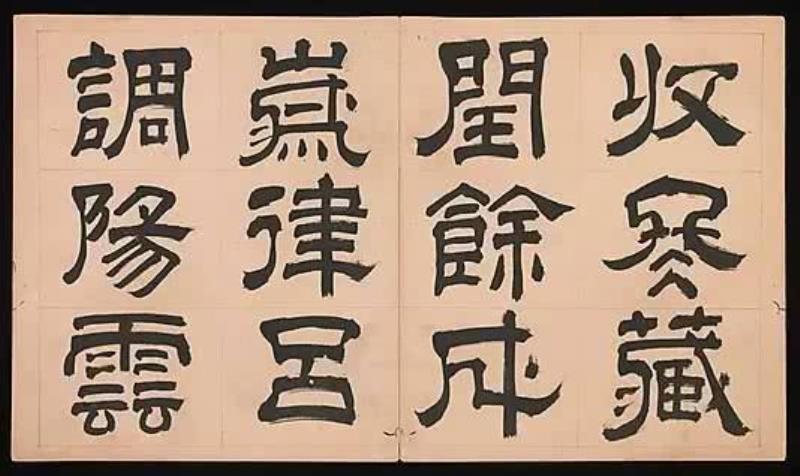 收冬藏
閏餘成
嵗律呂
調陽雲